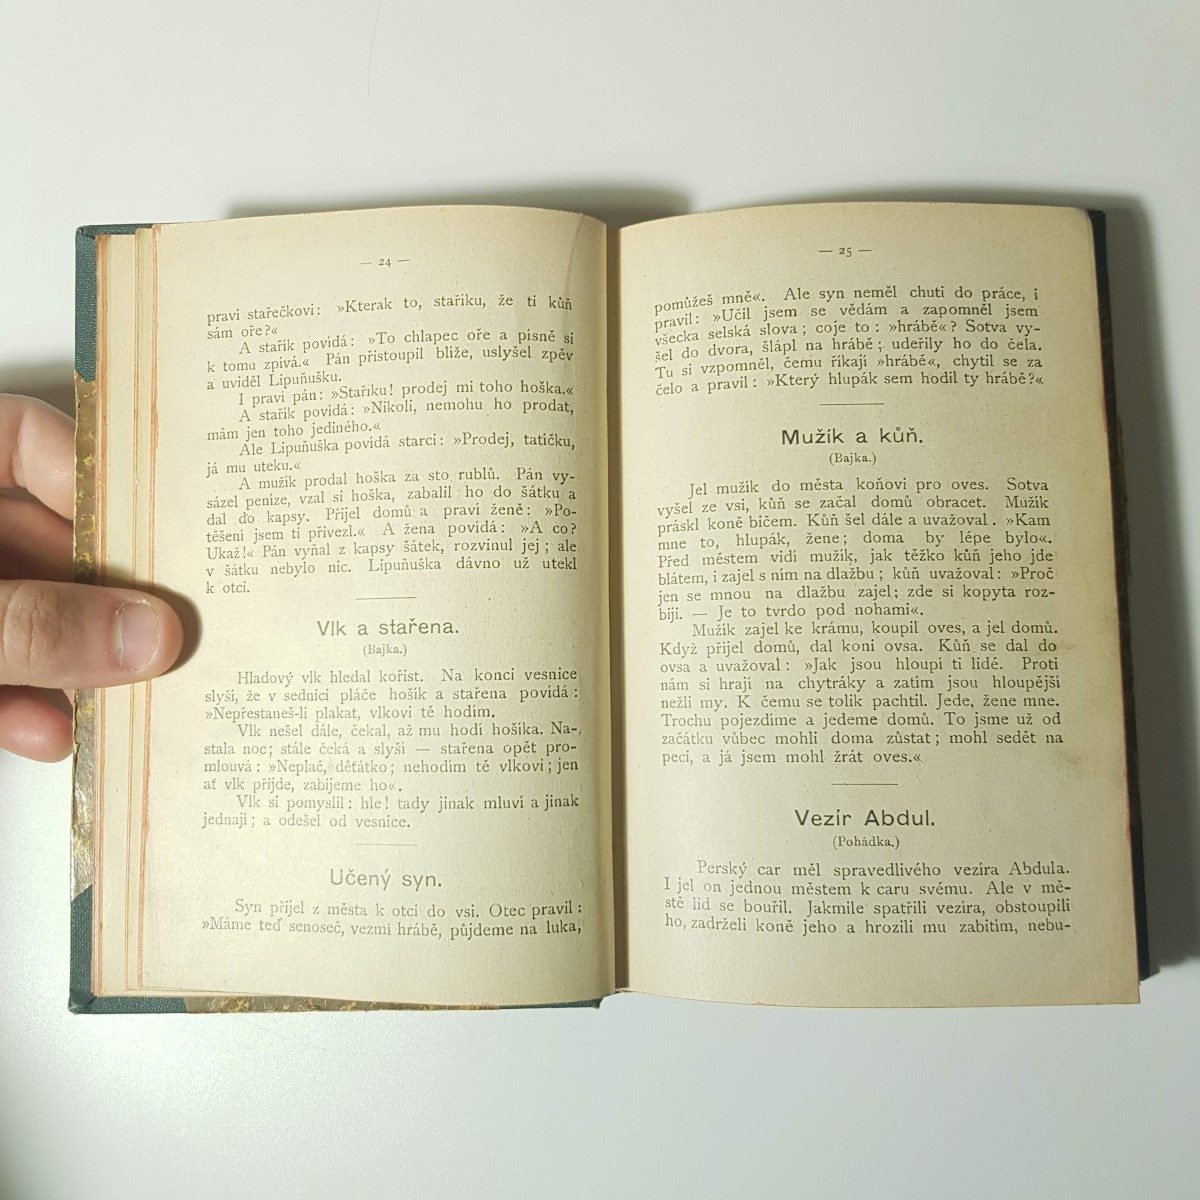 — 24 —
praví stařečkovi: »Kterak to, stařiku, že ti kůň
sám oře?«
A stařík povídá: »To chlapec oře a písně si
k tomu zpívá.« Pán přistoupil blíže, uslyšel zpěv
a uviděl Lipuňušku.
I praví pán: »Staříku! prodej mi toho hoška.«
A stařík povídá: »Nikoli, nemohu ho prodat,
mám jen toho jediného.«
Ale Lipuňuška povídá starci: »Prodej, tatíčku,
já mu uteku.«
A mužík prodal hoška za sto rublů. Pán vy-
sázel peníze, vzal si hoška, zabalil ho do šátku a
dal do kapsy. Přijel domů a praví ženě: »Po-
těšení jsem ti přivezl.« A žena povídá: »A co?
Ukaž!« Pán vyňal z kapsy šátek, rozvinul jej; ale
v šátku nebylo nic. Lipuňuška dávno už utekl
k otci.
Vlk a stařena.
(Bajka.)
Hladový vlk hledal kořist. Na konci vesnice
slyší, že v sednici pláče hošík a stařena povídá:
»Nepřestaneš-li plakat, vlkovi tě hodím.
Vlk nešel dále, čekal, až mu hodí hošíka. Na-
stala noc; stále čeká a slyší — stařena opět pro-
mlouvá: »Neplač, děťátko; nehodím tě vlkovi; jen
ať vlk přijde, zabijeme ho«.
Vlk si pomyslil: hle! tady jinak mluví a jinak
jednají; a odešel od vesnice.
Učený syn.
Syn přijel z města k otci do vsi. Otec pravil:
»Máme teď senoseč, vezmi hrábě, půjdeme na luka,
— 25 —
pomůžeš mně«. Ale syn neměl chuti do práce, i
pravil: »Učil jsem se vědám a zapomněl jsem
všecka selská slova; coje to: »hrábě«? Sotva vy-
šel do dvora, šlápl na hrábě; udeřily ho do čela.
Tu si vzpomněl, čemu říkají »hrábě«, chytil se za
čelo a pravil: »Který hlupák sem hodil ty hrábě?«
Mužík a kůň.
(Bajka.)
Jel mužík do města koňovi pro oves. Sotva
vyšel ze vsi, kůň se začal domů obracet. Mužík
práskl koně bičem. Kůň šel dále a uvažoval. »Kam
mne to, hlupák, žene; doma by lépe bylo«.
Před městem vidí mužík, jak těžko kůň jeho jde
blátem, i zajel s ním na dlažbu; kůň uvažoval: »Proč
jen se mnou na dlažbu zajel; zde si kopyta roz-
biji. — Je to tvrdo pod nohami«.
Mužík zajel ke krámu, koupil oves, a jel domů.
Když přijel domů, dal koni ovsa. Kůň se dal do
ovsa a uvažoval: »Jak jsou hloupí ti lidé. Proti
nám si hrají na chytráky a zatím jsou hloupější
nežli my. K čemu se tolik pachtil. Jede, žene mne.
Trochu pojezdíme a jedeme domů. To jsme už od
začátku vůbec mohli doma zůstat; mohl sedět na
peci, a já jsem mohl žrát oves.«
Vezír Abdul.
(Pohádka.)
Perský car měl spravedlivého vezíra Abdula.
I jel on jednou městem k caru svému. Ale v mě-
stě lid se bouřil. Jakmile spatřili vezíra, obstoupili
ho, zadrželi koně jeho a hrozili mu zabitím, nebu-